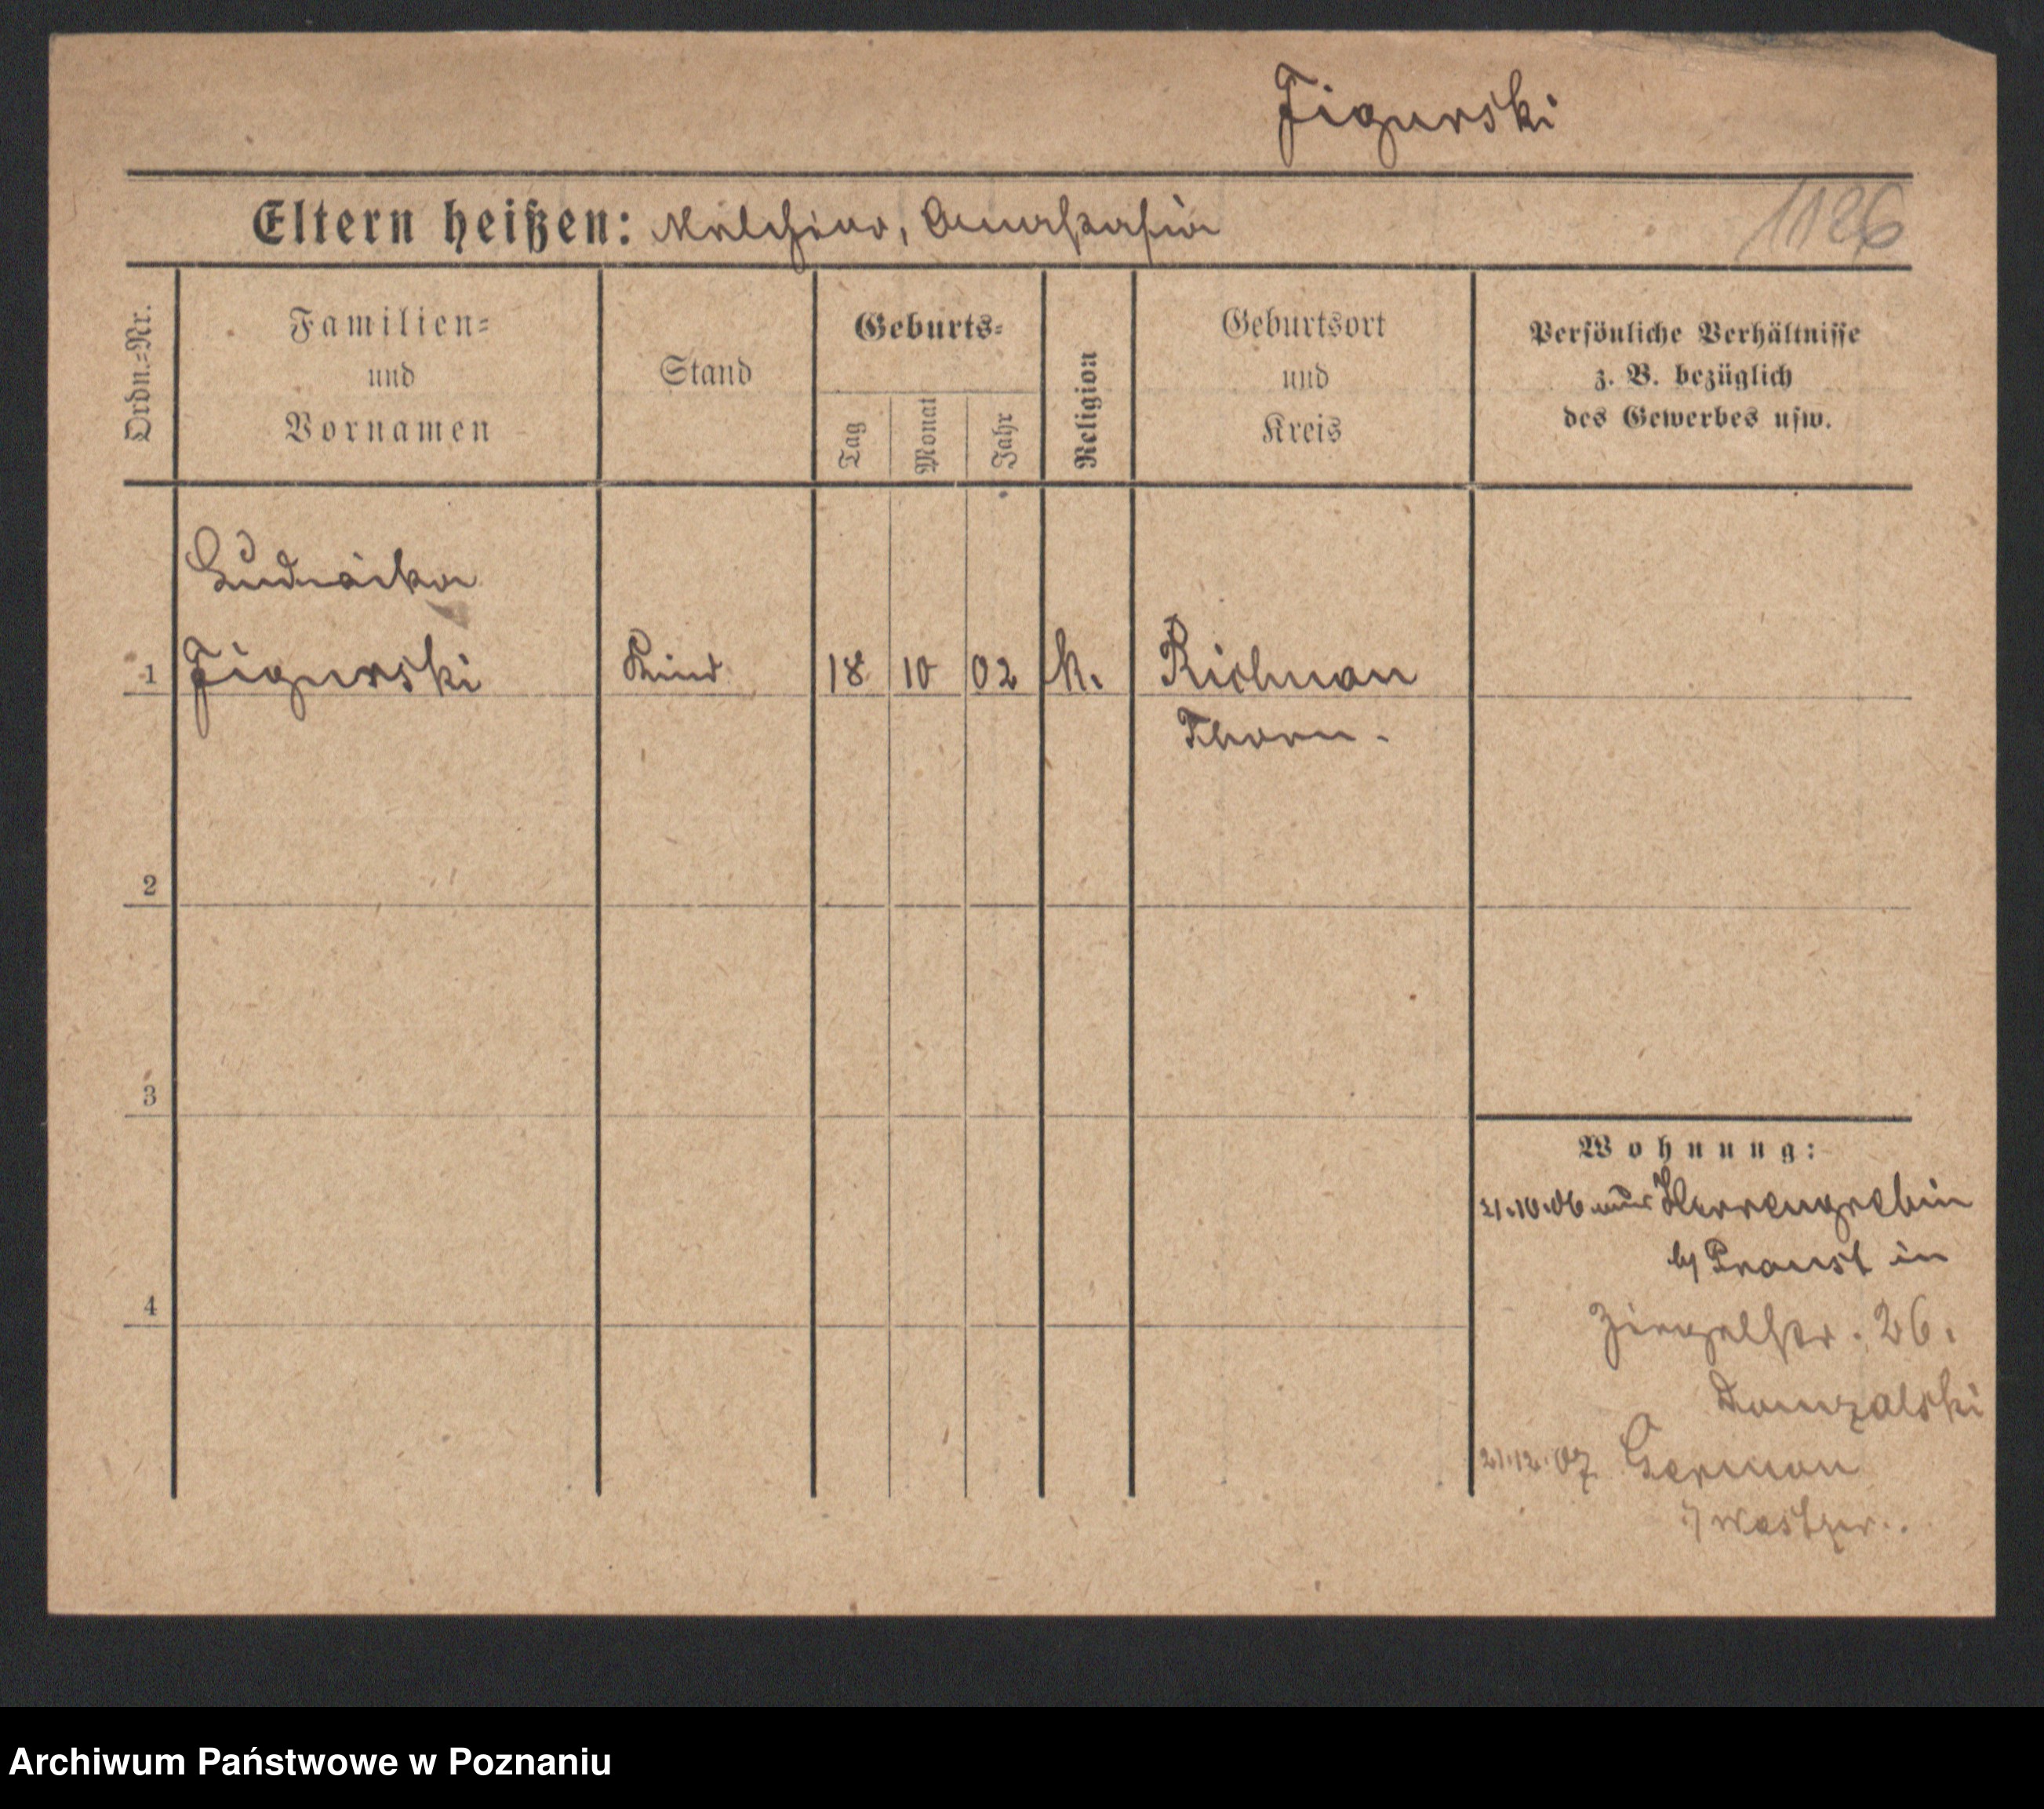 Figurski
Eltern heißen: Melchior, Anastasia
1126
Ordn.-Nr.
Familien-
und
Vornamen
Stand
Geburts-
Tag
Monat
Jahr
Religion
Geburtsort
und
Kreis
Persönliche Verhältnisse
z. B. bezüglich
des Gewerbes usw.
Ludwika
1 Figurski Kind 18 10 02 k. Richnau
Thorn.
2
3
4
Wohnung:
21.10.06 aus Herrengrebin
b/ Praust in
Ziegelstr. 26.
Domzalski
21.12.07 German
Archiwum Państwowe w Poznaniu